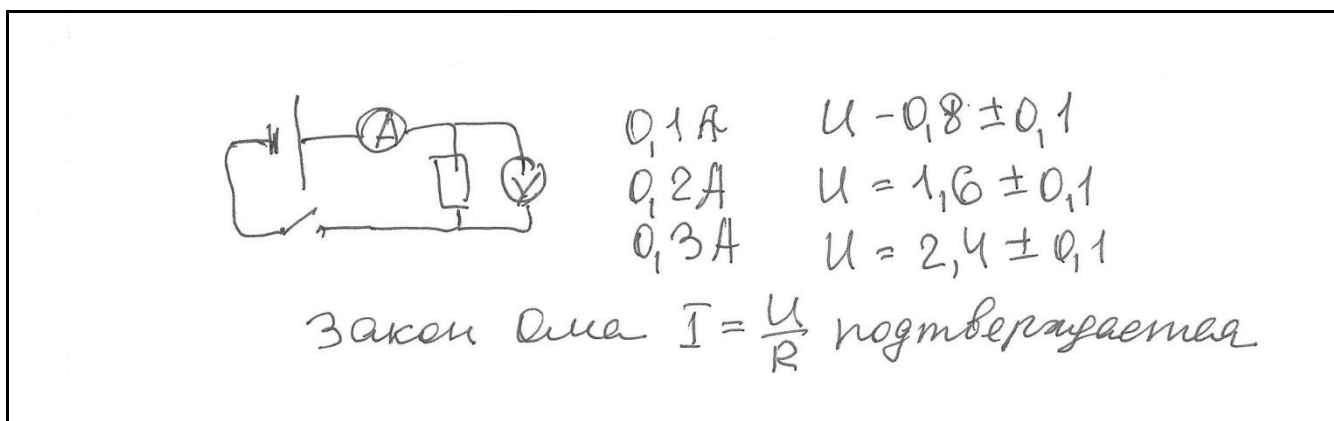 A
V
0,1A U - 0,8 ± 0,1
0,2A U = 1,6 ± 0,1
0,3A U = 2,4 ± 0,1
Закон Ома I = U/R подтверждается